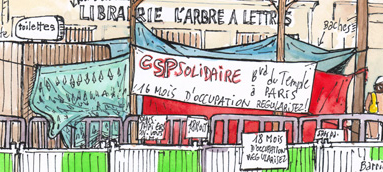 LIBRAIRIE L'ARBRE A LETTRES
toilettes
Bâches
CSP SOLIDAIRE
16 MOIS D'OCCUPATION
Bvd du Temple
à PARIS
REGULARISEZ!
18 MOIS
D'OCCUPATION
REGULARISEZ!
Barri